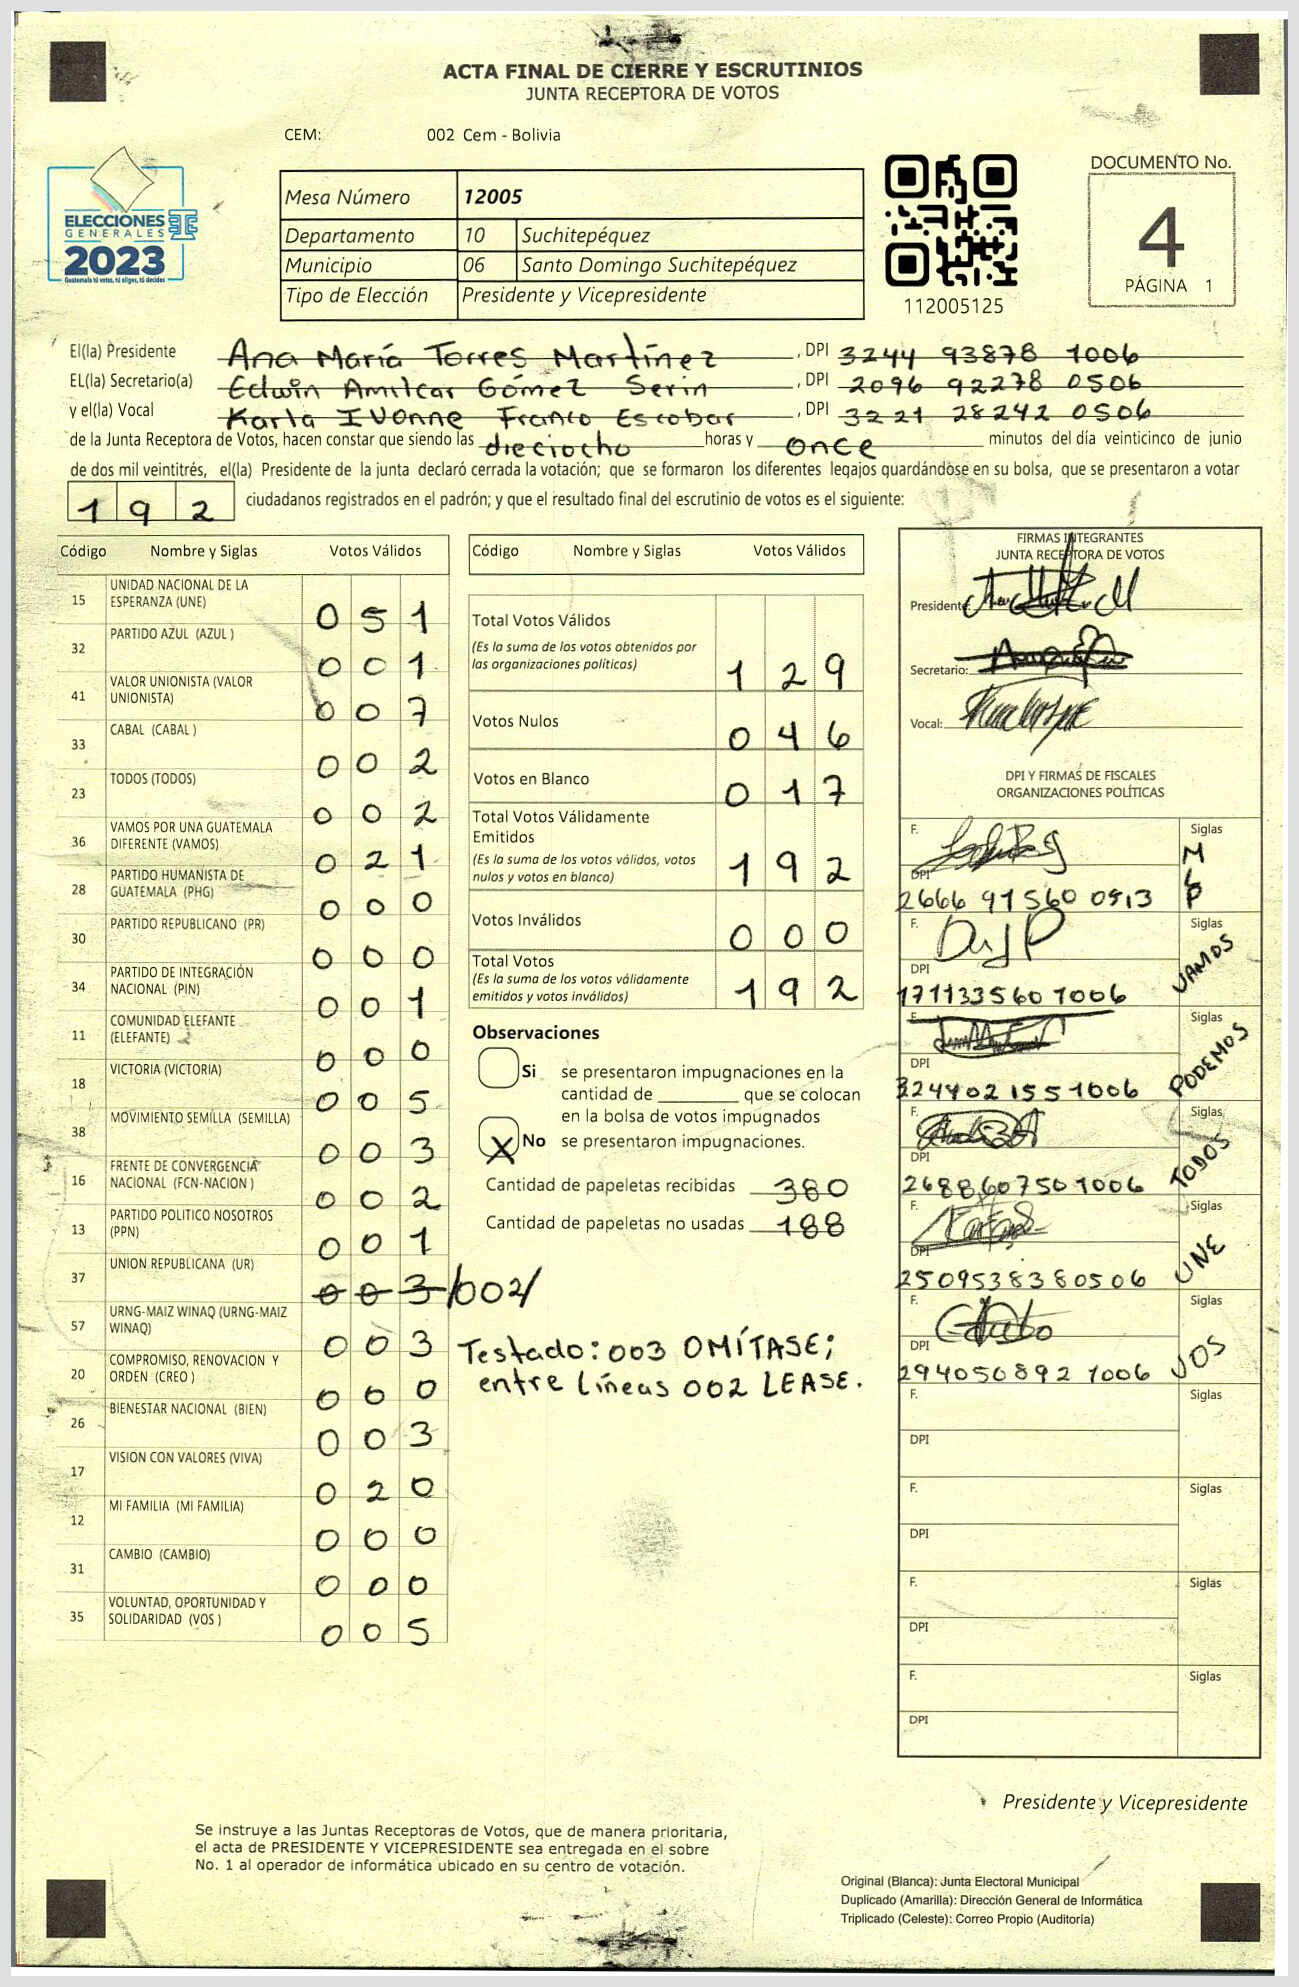 ACTA FINAL DE CIERRE Y ESCRUTINIOS
JUNTA RECEPTORA DE VOTOS
CEM: 002 Cem - Bolivia
ELECCIONES
GENERALES
2023
Guatemala tú votas, tú eliges, tú decides
Mesa Número 12005
Departamento 10 Suchitepéquez
Municipio 06 Santo Domingo Suchitepéquez
Tipo de Elección Presidente y Vicepresidente
112005125
DOCUMENTO No.
4
PÁGINA 1
El(la) Presidente Ana María Torres Martínez, DPI 3244 93878 1006
EL(la) Secretario(a) Edwin Amilcar Gómez Serin, DPI 2096 92278 0506
y el(la) Vocal Karla Ivonne Franco Escobar, DPI 3221 28242 0506
de la Junta Receptora de Votos, hacen constar que siendo las dieciocho horas y once minutos del día veinticinco de junio
de dos mil veintitrés, el(la) Presidente de la junta declaró cerrada la votación; que se formaron los diferentes legajos guardándose en su bolsa, que se presentaron a votar
192 ciudadanos registrados en el padrón; y que el resultado final del escrutinio de votos es el siguiente:
Código Nombre y Siglas Votos Válidos
15 UNIDAD NACIONAL DE LA ESPERANZA (UNE) 051
32 PARTIDO AZUL (AZUL ) 001
41 VALOR UNIONISTA (VALOR UNIONISTA) 007
33 CABAL (CABAL ) 002
23 TODOS (TODOS) 002
36 VAMOS POR UNA GUATEMALA DIFERENTE (VAMOS) 021
28 PARTIDO HUMANISTA DE GUATEMALA (PHG) 000
30 PARTIDO REPUBLICANO (PR) 000
34 PARTIDO DE INTEGRACIÓN NACIONAL (PIN) 001
11 COMUNIDAD ELEFANTE (ELEFANTE) 000
18 VICTORIA (VICTORIA) 005
38 MOVIMIENTO SEMILLA (SEMILLA) 003
16 FRENTE DE CONVERGENCIA NACIONAL (FCN-NACION ) 002
13 PARTIDO POLITICO NOSOTROS (PPN) 001
37 UNION REPUBLICANA (UR) 003 /002/
57 URNG-MAIZ WINAQ (URNG-MAIZ WINAQ) 003
20 COMPROMISO, RENOVACION Y ORDEN (CREO ) 000
26 BIENESTAR NACIONAL (BIEN) 003
17 VISION CON VALORES (VIVA) 020
12 MI FAMILIA (MI FAMILIA) 000
31 CAMBIO (CAMBIO) 000
35 VOLUNTAD, OPORTUNIDAD Y SOLIDARIDAD (VOS ) 005
Código Nombre y Siglas Votos Válidos
Total Votos Válidos 129
(Es la suma de los votos obtenidos por
las organizaciones políticas)
Votos Nulos 046
Votos en Blanco 017
Total Votos Válidamente
Emitidos 192
(Es la suma de los votos válidos, votos
nulos y votos en blanco)
Votos Inválidos 000
Total Votos 192
(Es la suma de los votos válidamente
emitidos y votos inválidos)
Observaciones
Si se presentaron impugnaciones en la
cantidad de ________ que se colocan
en la bolsa de votos impugnados
X No se presentaron impugnaciones.
Cantidad de papeletas recibidas 380
Cantidad de papeletas no usadas 188
Testado: 003 OMÍTASE;
entre líneas 002 LEASE.
FIRMAS INTEGRANTES
JUNTA RECEPTORA DE VOTOS
Presidente:
Secretario:
Vocal:
DPI Y FIRMAS DE FISCALES
ORGANIZACIONES POLÍTICAS
F. Siglas MLP
DPI
2666 91560 0513
F. Siglas VAMOS
DPI
171133560 1006
F. Siglas PODEMOS
DPI
324402155 1006
F. Siglas TODOS
DPI
268860750 1006
F. Siglas UNE
DPI
2509538380506
F. Siglas VOS
DPI
294050892 1006
F. Siglas
DPI
F. Siglas
DPI
F. Siglas
DPI
F. Siglas
DPI
Presidente y Vicepresidente
Se instruye a las Juntas Receptoras de Votos, que de manera prioritaria,
el acta de PRESIDENTE Y VICEPRESIDENTE sea entregada en el sobre
No. 1 al operador de informática ubicado en su centro de votación.
Original (Blanca): Junta Electoral Municipal
Duplicado (Amarilla): Dirección General de Informática
Triplicado (Celeste): Correo Propio (Auditoría)